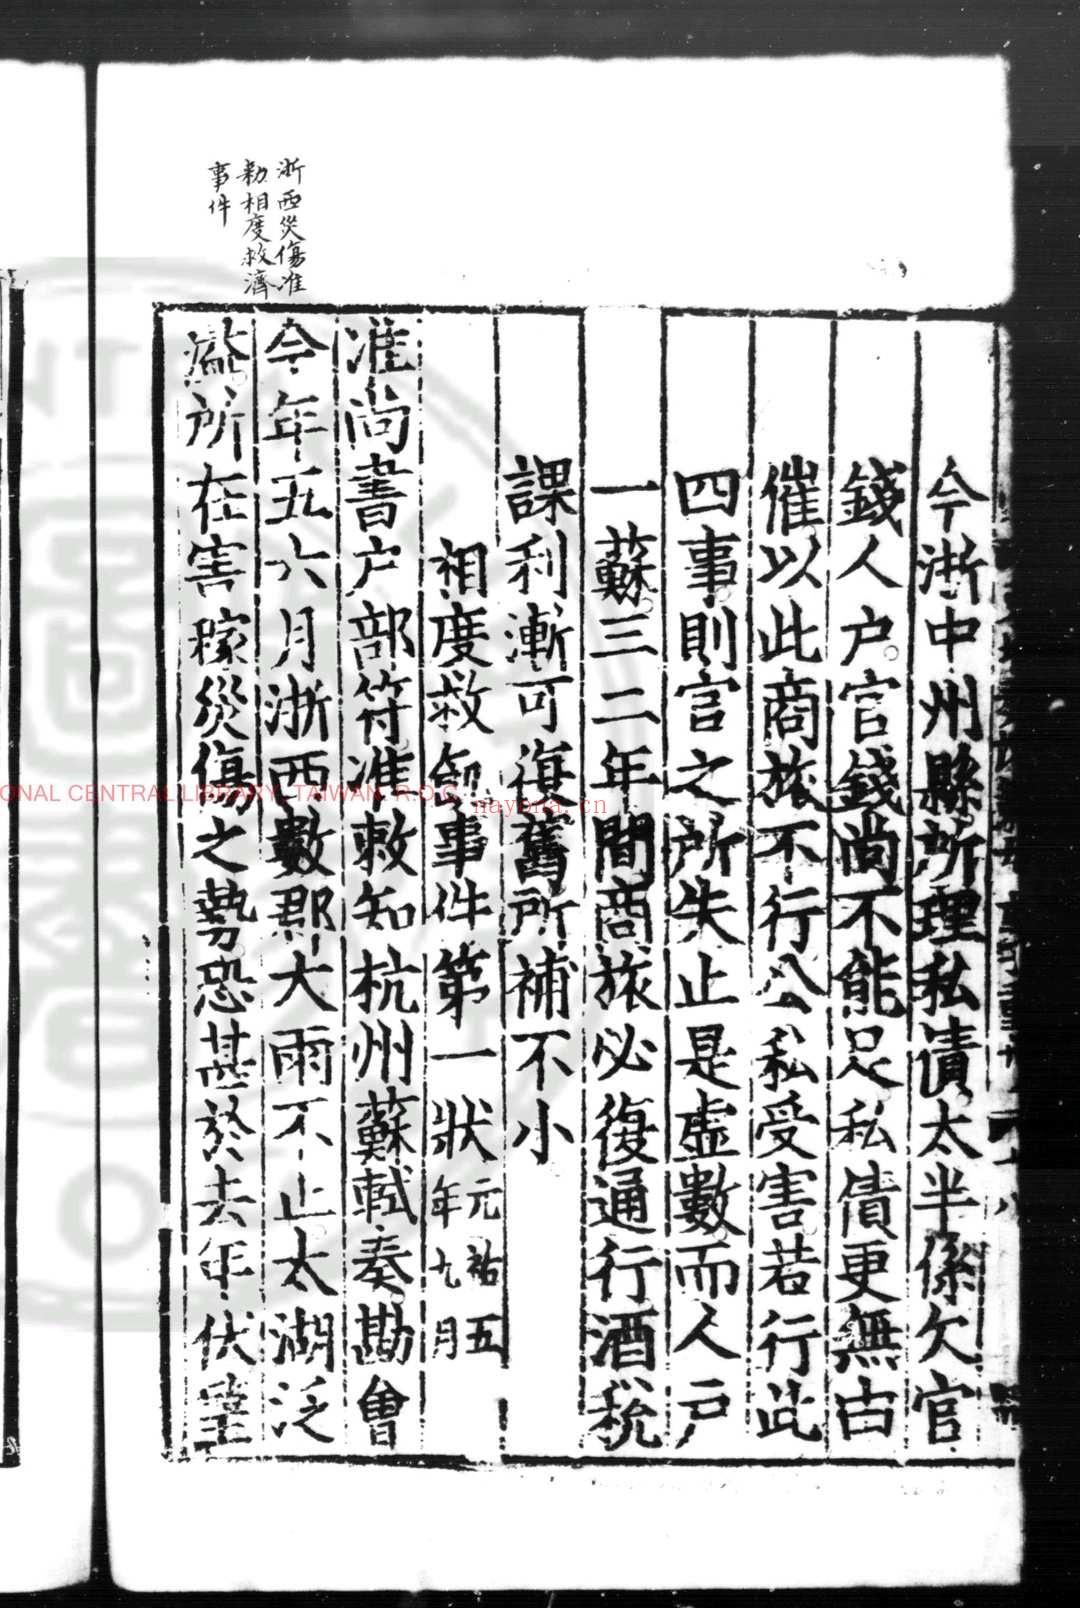 今浙中州縣所理私債太半係欠官
錢人户官錢尚不能足私債更無由
催以此商旅不行公私受害若行此
四事則官之所失止是虚數而人户
一蘇三二年間商旅必復通行酒税
課利漸可復舊所補不小
相度救𠋣事件第一狀元祐五年九月
准尚書户部符准敕知杭州蘇軾奏勘會
今年五六月浙西數郡大雨不止太湖泛
溢所在害稼災傷之勢恐甚於去年伏望
浙西災傷准
勑相度救濟
事件
NATIONAL CENTRAL LIBRARY, TAIWAN. R.O.C
nayona.cn